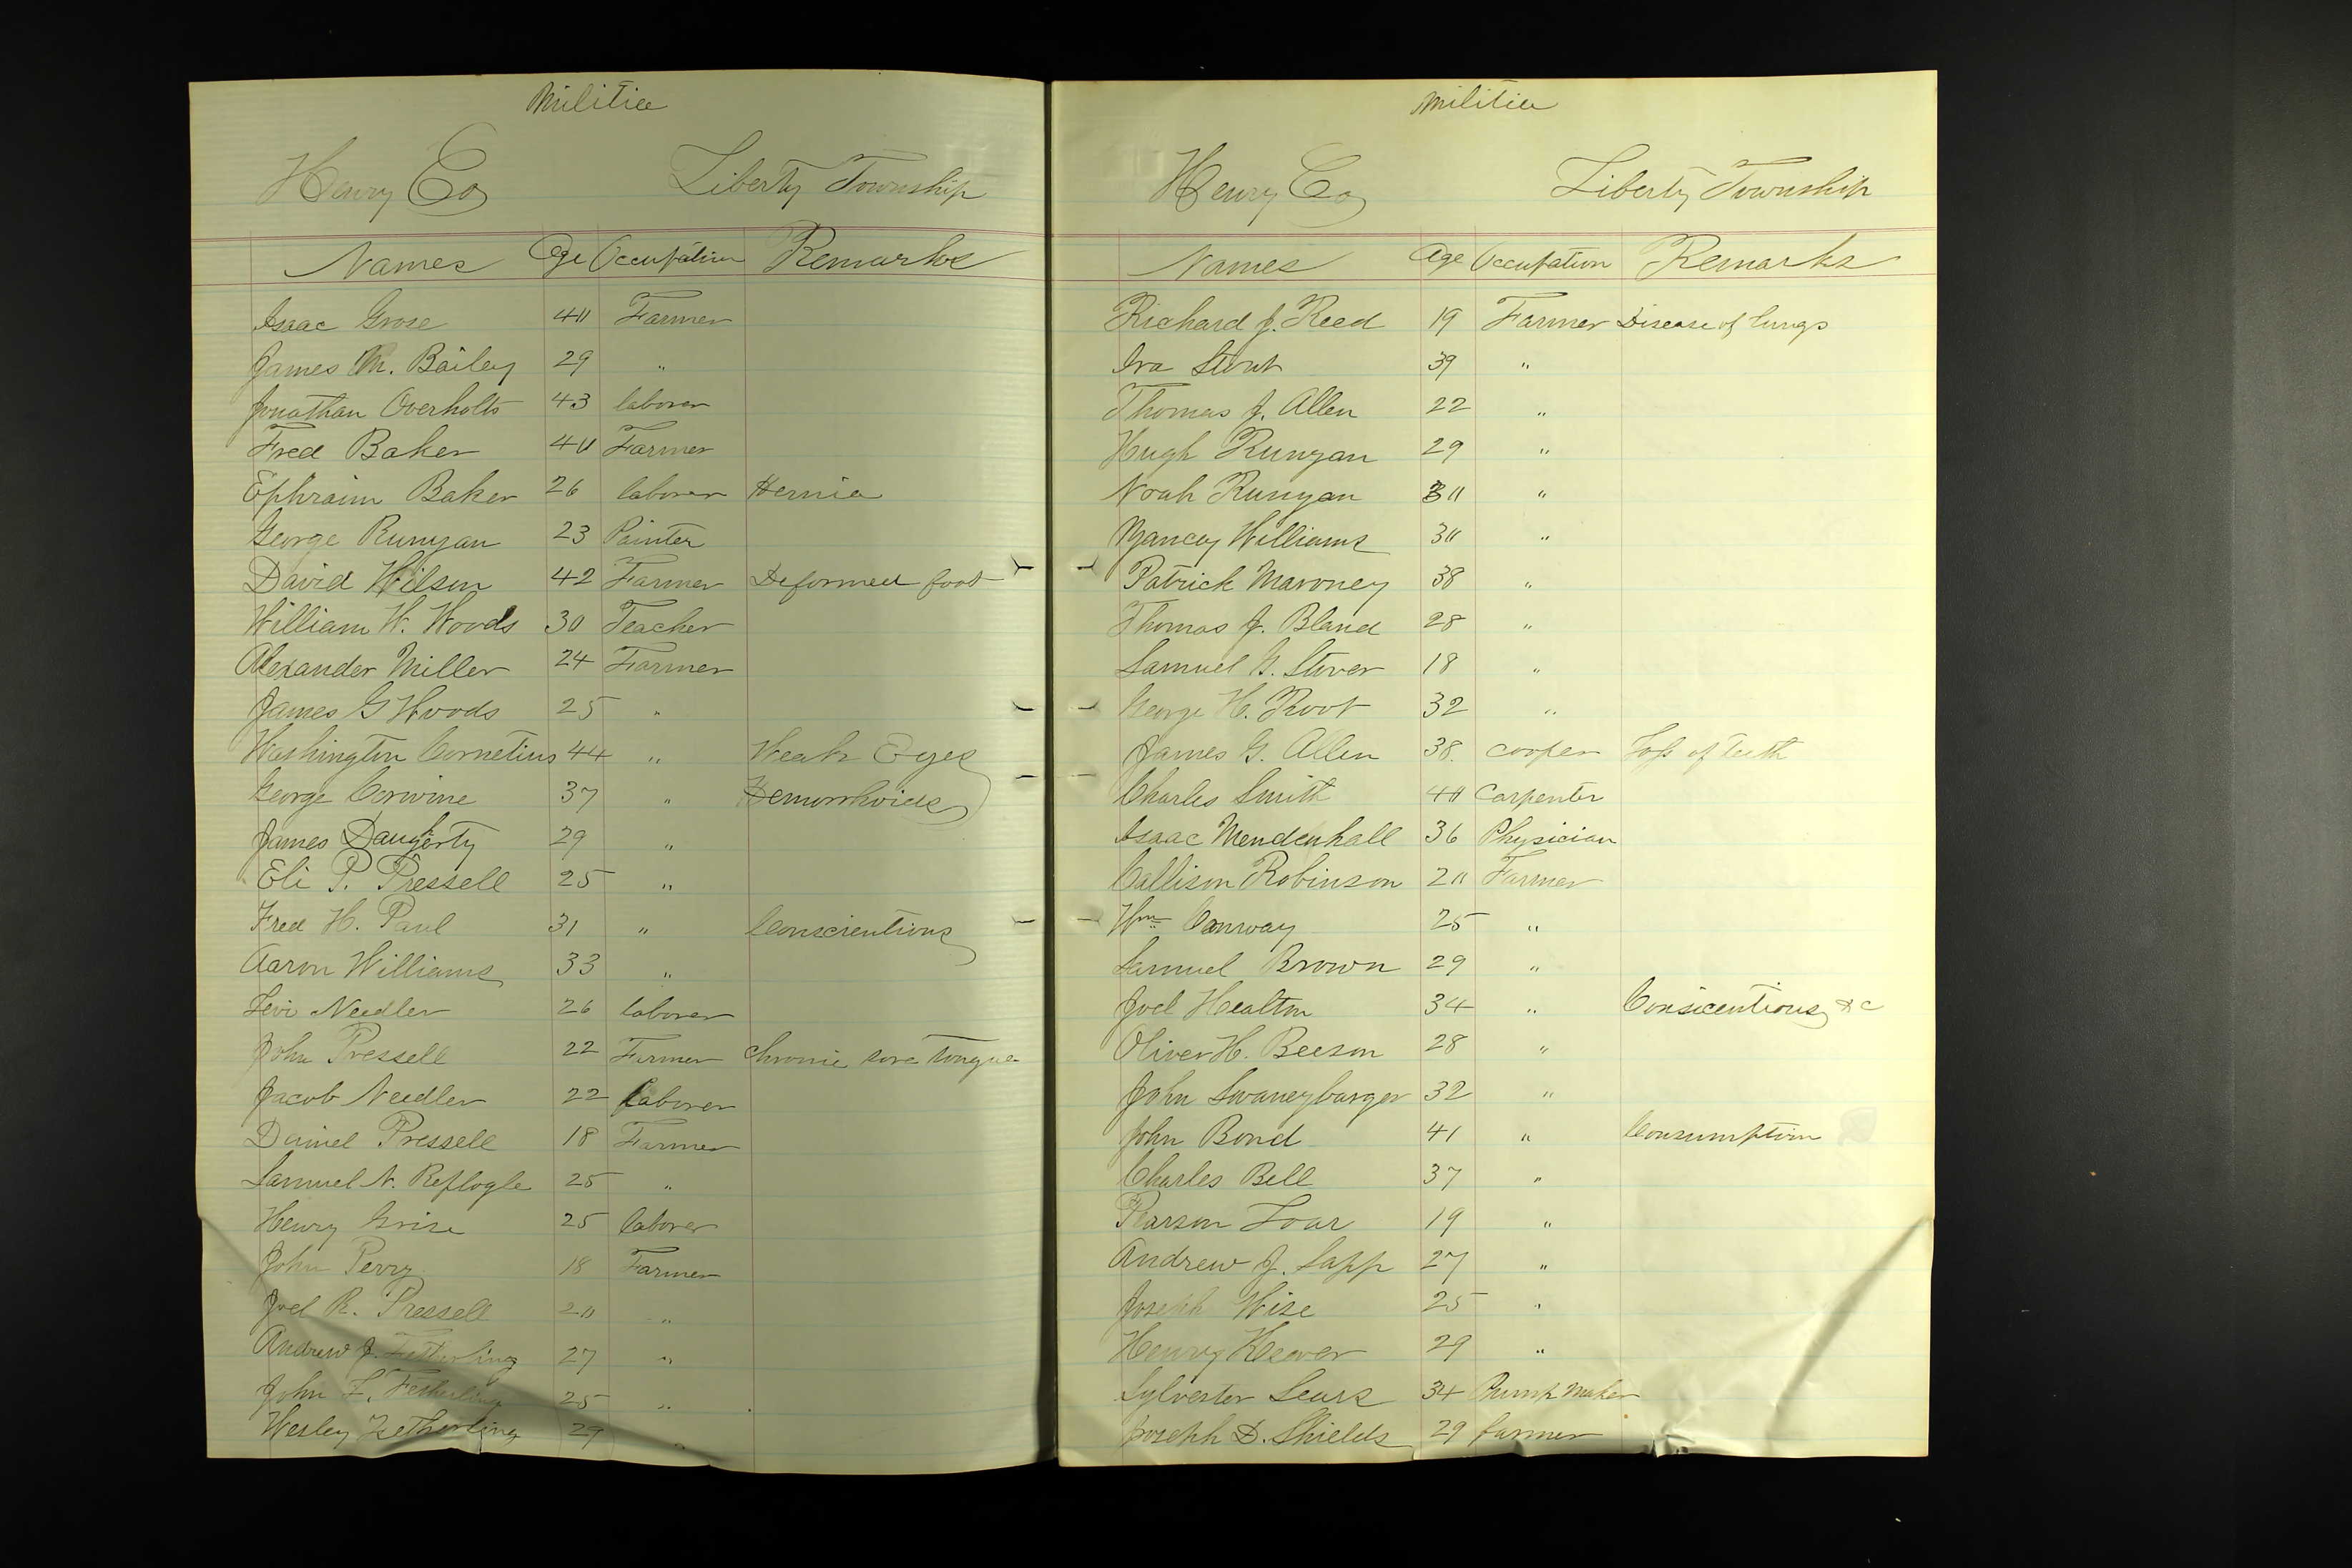 Militia
Henry Co Liberty Township
Names Age Occupation Remarks
Isaac Grose 40 Farmer
James M. Bailey 29 "
Jonathan Overholts 43 laborer
Fred Baker 40 Farmer
Ephraim Baker 26 laborer Hernia
George Runyan 23 Painter
David Wilson 42 Farmer Deformed foot
William W. Woods 30 Teacher
Alexander Miller 24 Farmer
James G Woods 25 "
Washington Cornetius 44 " Weak Eyes
George Corwine 37 " Hemorrhoids
James Daugherty 29 "
Eli P. Pressell 25 "
Fred H. Paul 31 " Conscientious
Aaron Williams 33 "
Levi Needler 26 laborer
John Pressell 22 Farmer Chronic sore tongue
Jacob Needler 22 Laborer
Daniel Pressell 18 Farmer
Samuel N. Replogle 25 "
Henry Grise 25 laborer
John Perry 18 Farmer
Joel R. Pressell 20 "
Andrew J. Fetherling 27 "
John L. Fetherling 25 "
Wesley Fetherling 29 "
Militia
Henry Co Liberty Township
Names Age Occupation Remarks
Richard J. Reed 19 Farmer Disease of lungs
Ira Stout 39 "
Thomas J. Allen 22 "
Hugh Runyan 29 "
Noah Runyan 30 "
Yancey Williams 30 "
Patrick Maroney 38 "
Thomas J. Bland 28 "
Samuel G. Stover 18 "
George H. Root 32 "
James G. Allen 38. Cooper Loss of teeth
Charles Smith 40 Carpenter
Isaac Mendenhall 36 Physician
Callison Robinson 20 Farmer
Wm Conway 25 "
Samuel Brown 29 "
Joel Healton 34 " Consicentious &c
Oliver H. Beeson 28 "
John Swaneybarger 32 "
John Bond 41 " Consumption
Charles Bell 37 "
Pearson Loar 19 "
Andrew J. Sapp 27 "
Joseph Wise 25 "
Henry Keever 29 "
Sylvester Sears 34 Pump Maker
Joseph D. Shields 29 farmer